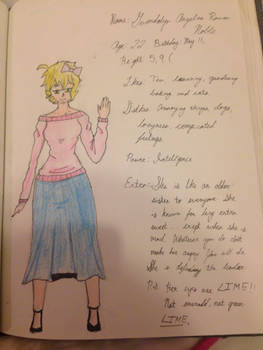 Name: Gwendolyn Angelina Roman
Noble
Age: 22 Birthday: May 11,
Height: 5,9 (
Likes: Tea, learning, gardening
baking and cats.
Dislikes: Annoying , dogs,
, complicated
feelings.
Power: Intelligence
Extra: She is like an older
sister to everyone. She
is known for being extra
sweet... except when she
is mad. Whatever you do don't
make her angry. She will
She is the
P.S Her eyes are LIME!!
Not emerald, not green
LIME.